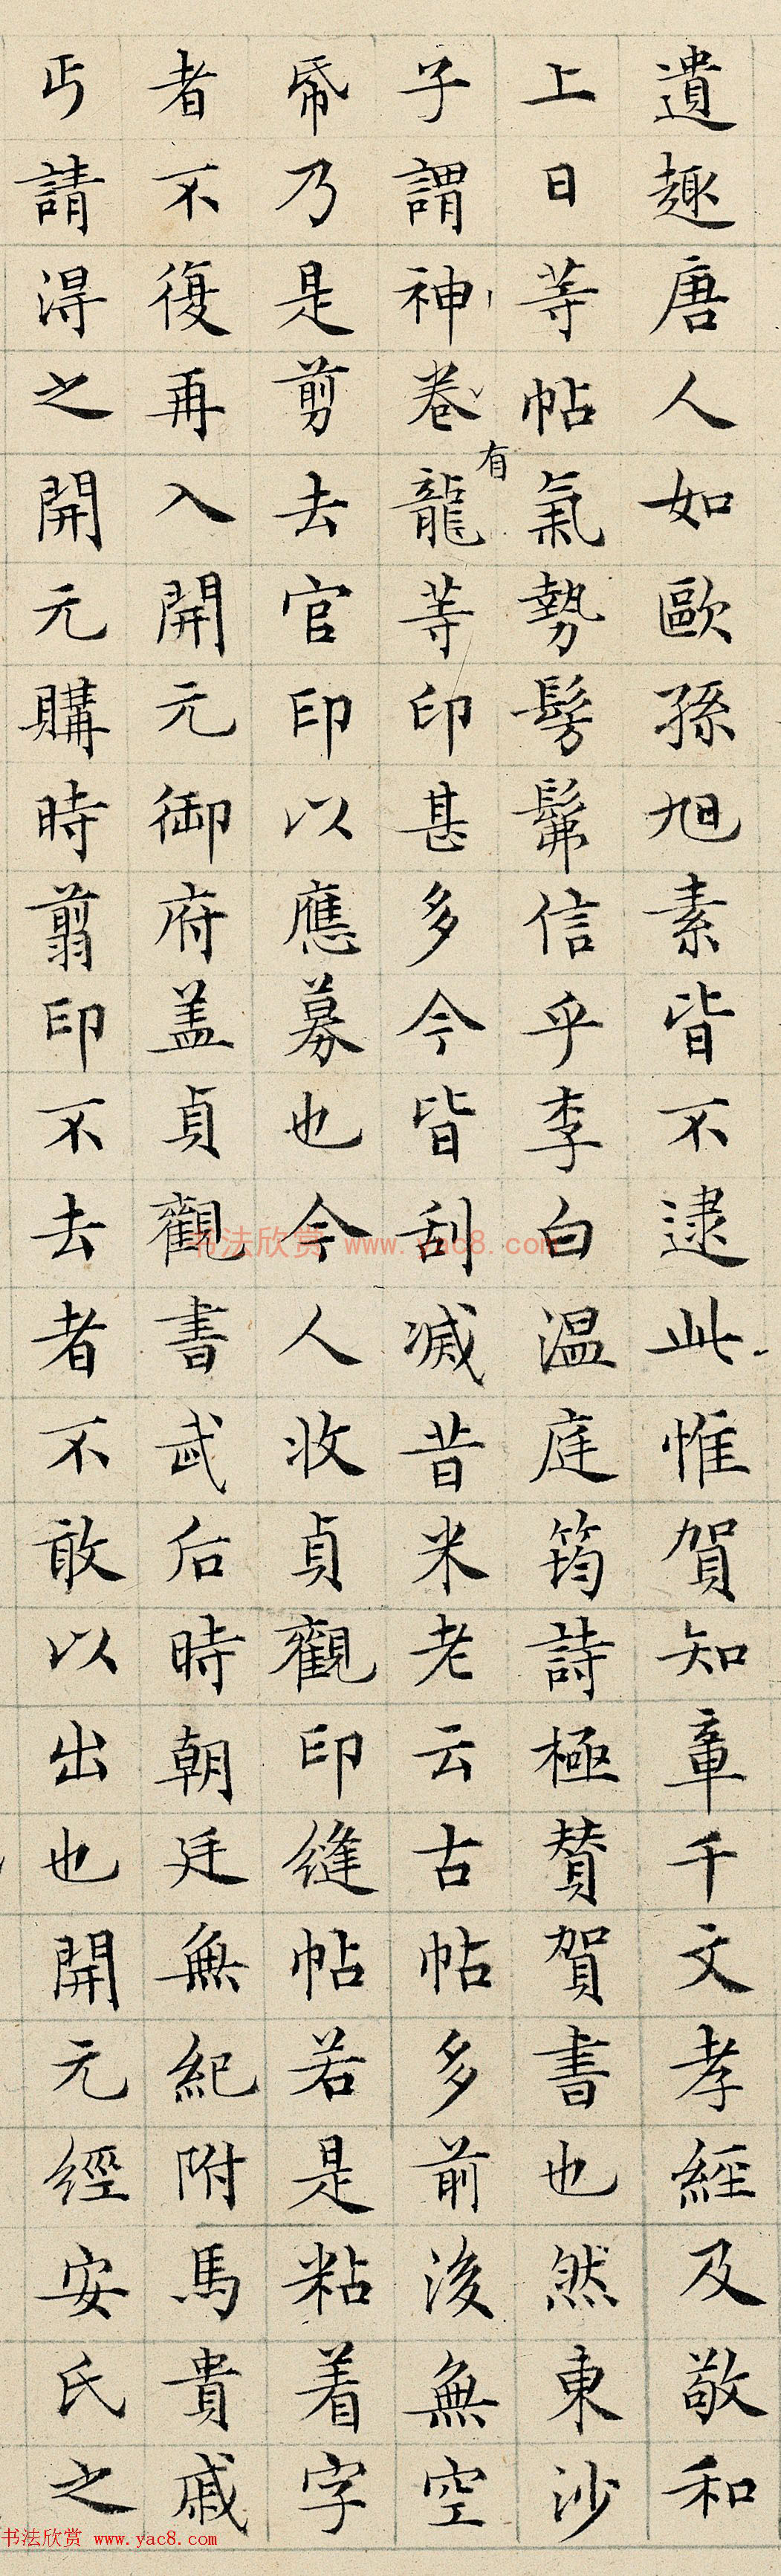 遺趣唐人如歐孫旭素皆不逮此惟賀知章千文孝經及敬和
上日等帖氣勢髣髴信乎李白温庭筠詩極賛賀書也然東沙
子謂神卷有龍等印甚多今皆刮滅昔米老云古帖多前後無空
帋乃是剪去官印以應募也今人收貞觀印縫帖若是粘着字
者不復再入開元御府盖貞觀書武后時朝廷無紀附馬貴戚
丐請得之開元購時翦印不去者不敢以出也開元經安氏之
书法欣赏 www.yac8.com
书法欣赏 www.yac8.com